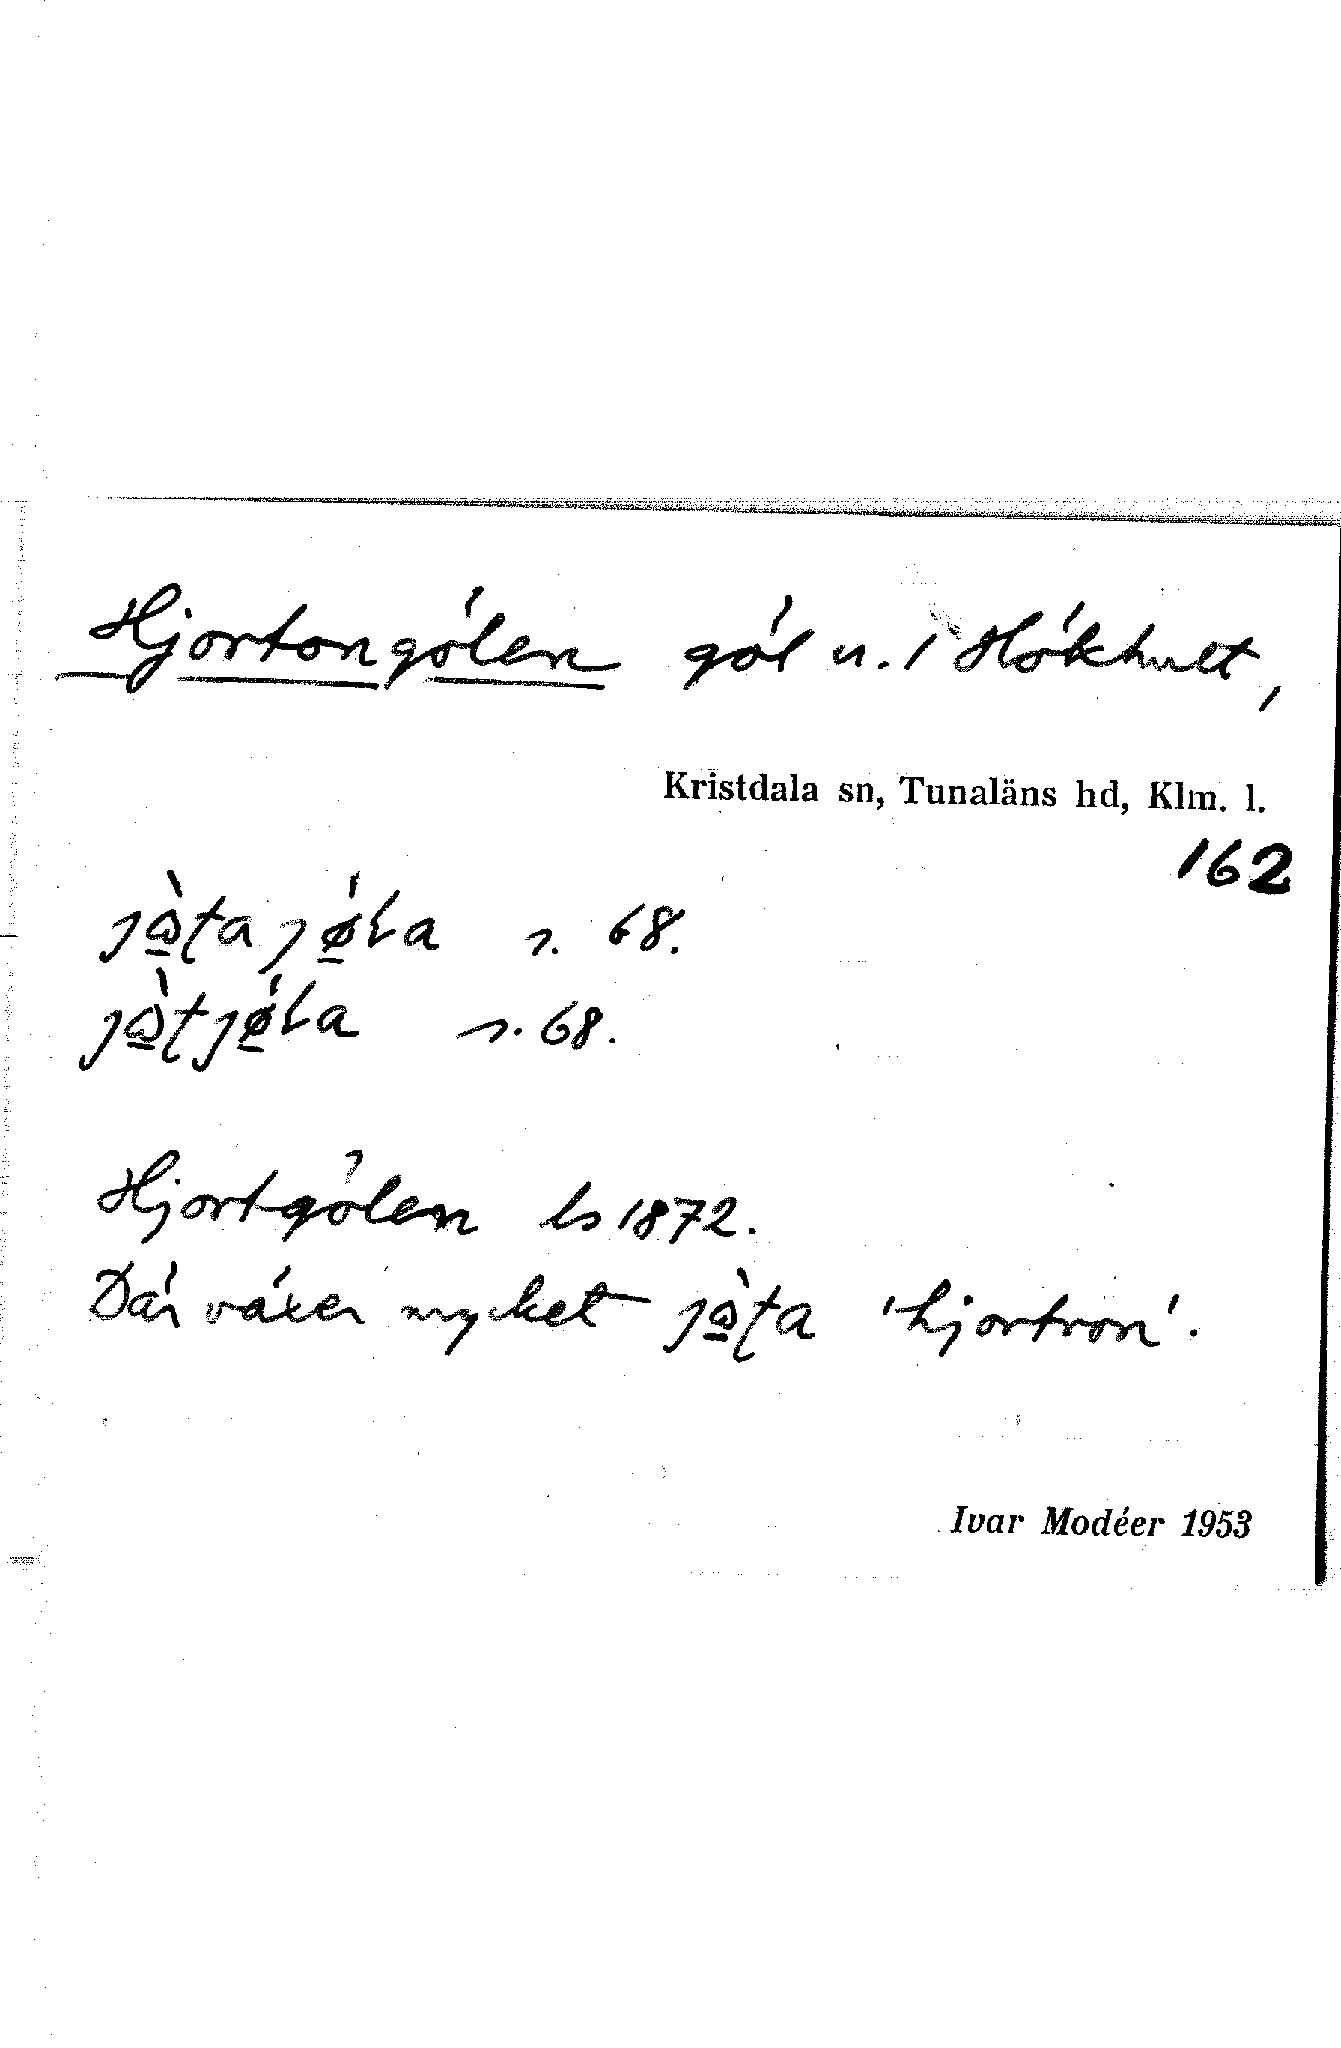 Hjortongölen göl u. i Hökhult,
Kristdala sn, Tunaläns hd, Klm. l.
162
s. 68.
s. 68.
Hjortgölen ls 1872.
Där växer mycket 'hjortron'.
Ivar Modéer 1953